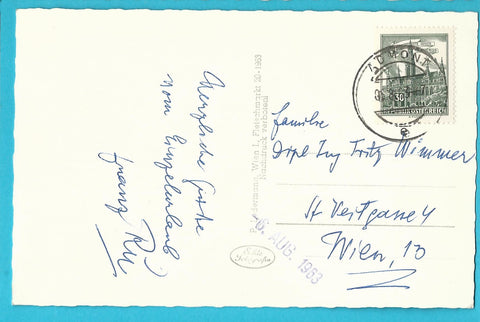 Herzliche Grüße
vom Einzelurlaub
Franz
Wien I., Fleischmarkt 20 - 1963
Nachdruck verboten!
ADMONT
e
REPUBLIK ÖSTERREICH
Familie
Dipl Ing Fritz Wimmer
St Veitgasse 4
Wien, 13
6. AUG. 1963